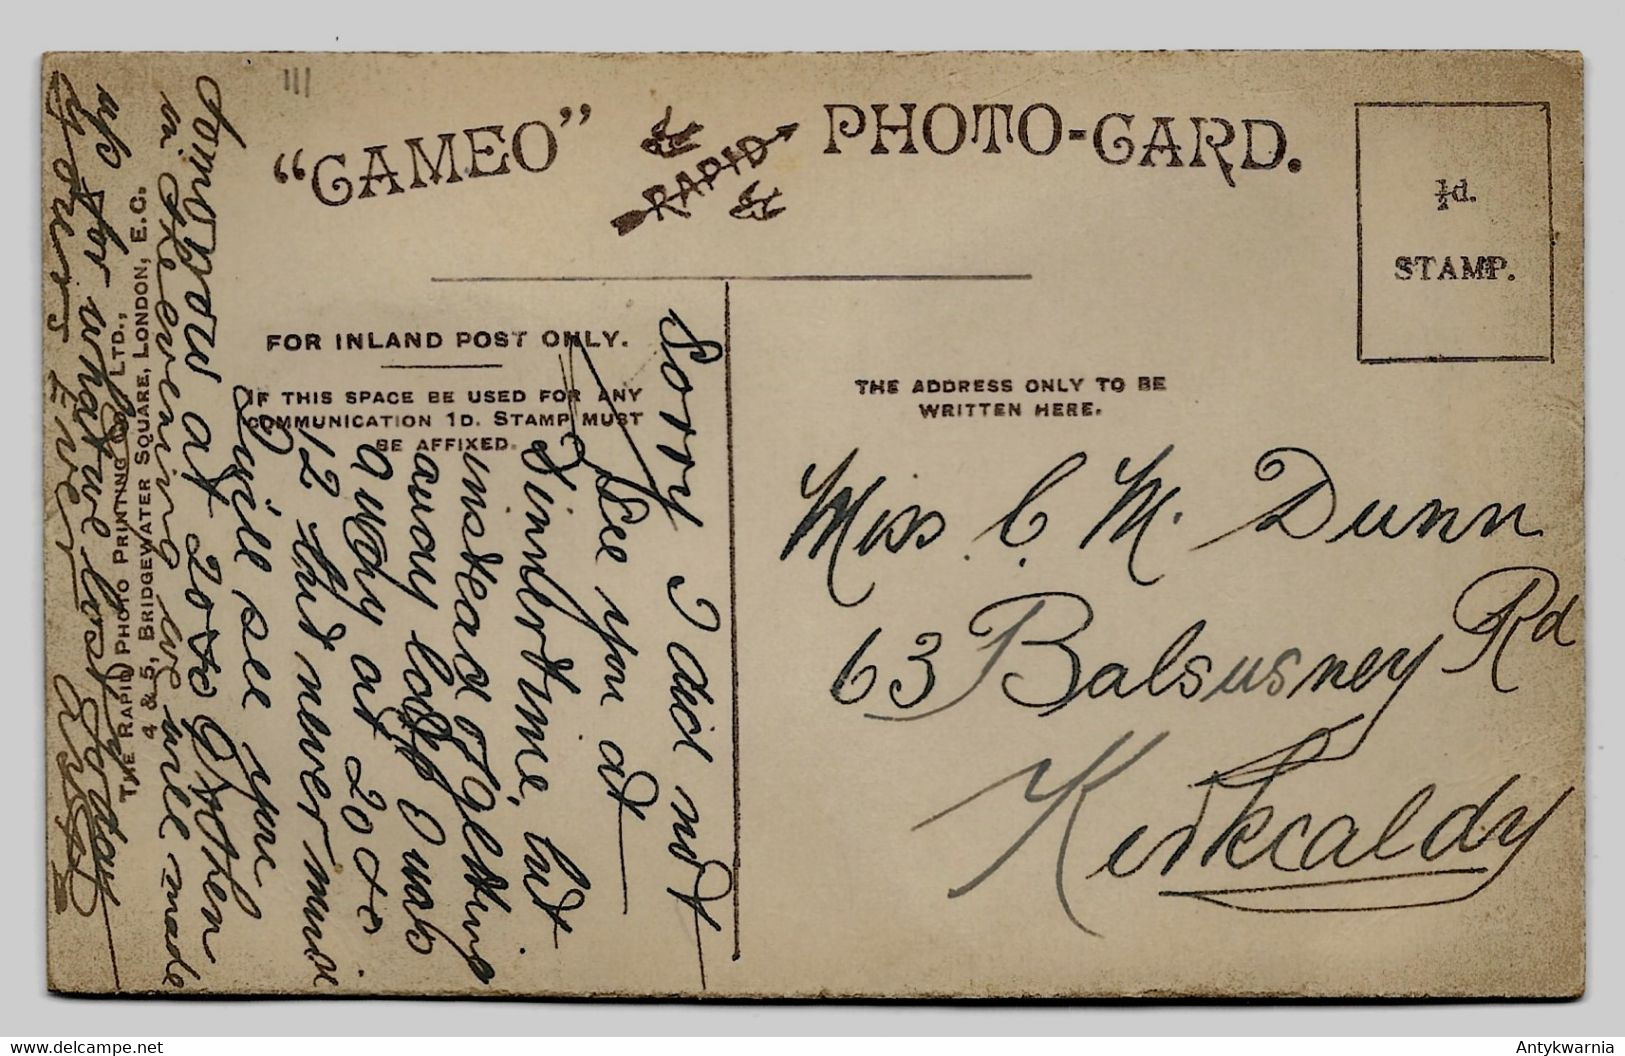 "CAMEO" RAPID PHOTO-CARD.
½d.
STAMP.
FOR INLAND POST ONLY.
IF THIS SPACE BE USED FOR ANY
COMMUNICATION 1D. STAMP MUST
BE AFFIXED.
THE ADDRESS ONLY TO BE
WRITTEN HERE.
THE RAPID PHOTO PRINTING CO. LTD.,
4 & 5, BRIDGEWATER SQUARE, LONDON, E.C.
Miss. C. M. Dunn
63 Balsusney Rd
Kirkcaldy
Sorry I did not
See you at
dinnertime, but
instead of getting
away I was
away at 20 to
12 but never mind
I will see you
tomorrow at 20 to 9 then
in the evening we will make
up for what we lost today
Yours Ever